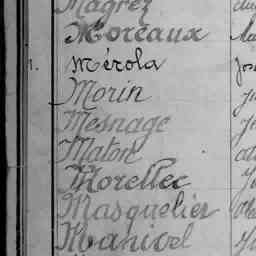 Magrez
Moreaux
1. Mérola
Morin
Mesnage
Maton
Morellec
Masquelier
Manivel